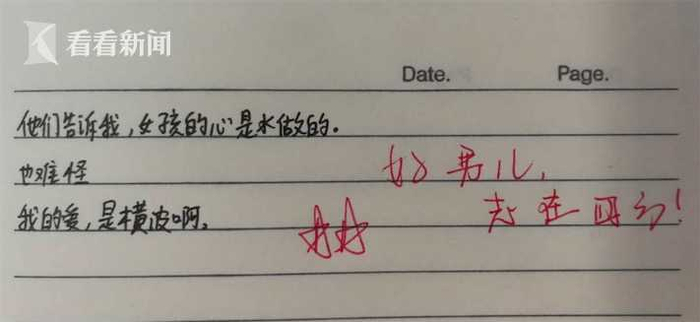 看看新闻
Date. Page.
他们告诉我,女孩的心是水做的.
也难怪
我的爱,是横波啊.
好男儿,
志在四方!